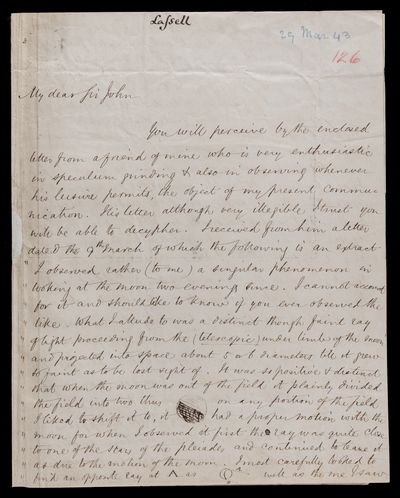 Lassell
29 Mar 43
126
My dear Sir John
You will perceive by the enclosed
letter from a friend of mine who is very enthusiastic
in speculum grinding & also in observing whenever
his leisure permits, the object of my present commu
nication. His letter although very illegible I trust you
will be able to decypher. I received from him a letter
dated the 9th March of which the following is an extract
I observed rather (to me) a singular phenomenon in
looking at the moon two evenings since. I cannot account
for it and should like to know if you ever observed the
like. What I allude to was a distinct though faint ray
of light proceeding from the (telescopic) under limb of the moon
and projected into space about 5 or 6 diameters till it grew
so faint as to be lost sight of. It was so positive & distinct
that when the moon was out of the field it plainly divided
the field into two thus on any portion of the field
I liked to shift it to, it had a proper motion with the
moon for when I observed it first the ray was quite close
to one of the stars of the pleiades and continued to leave it
as due to the motion of the moon. I most carefully looked to
find an opposite ray at A as well as the one I saw